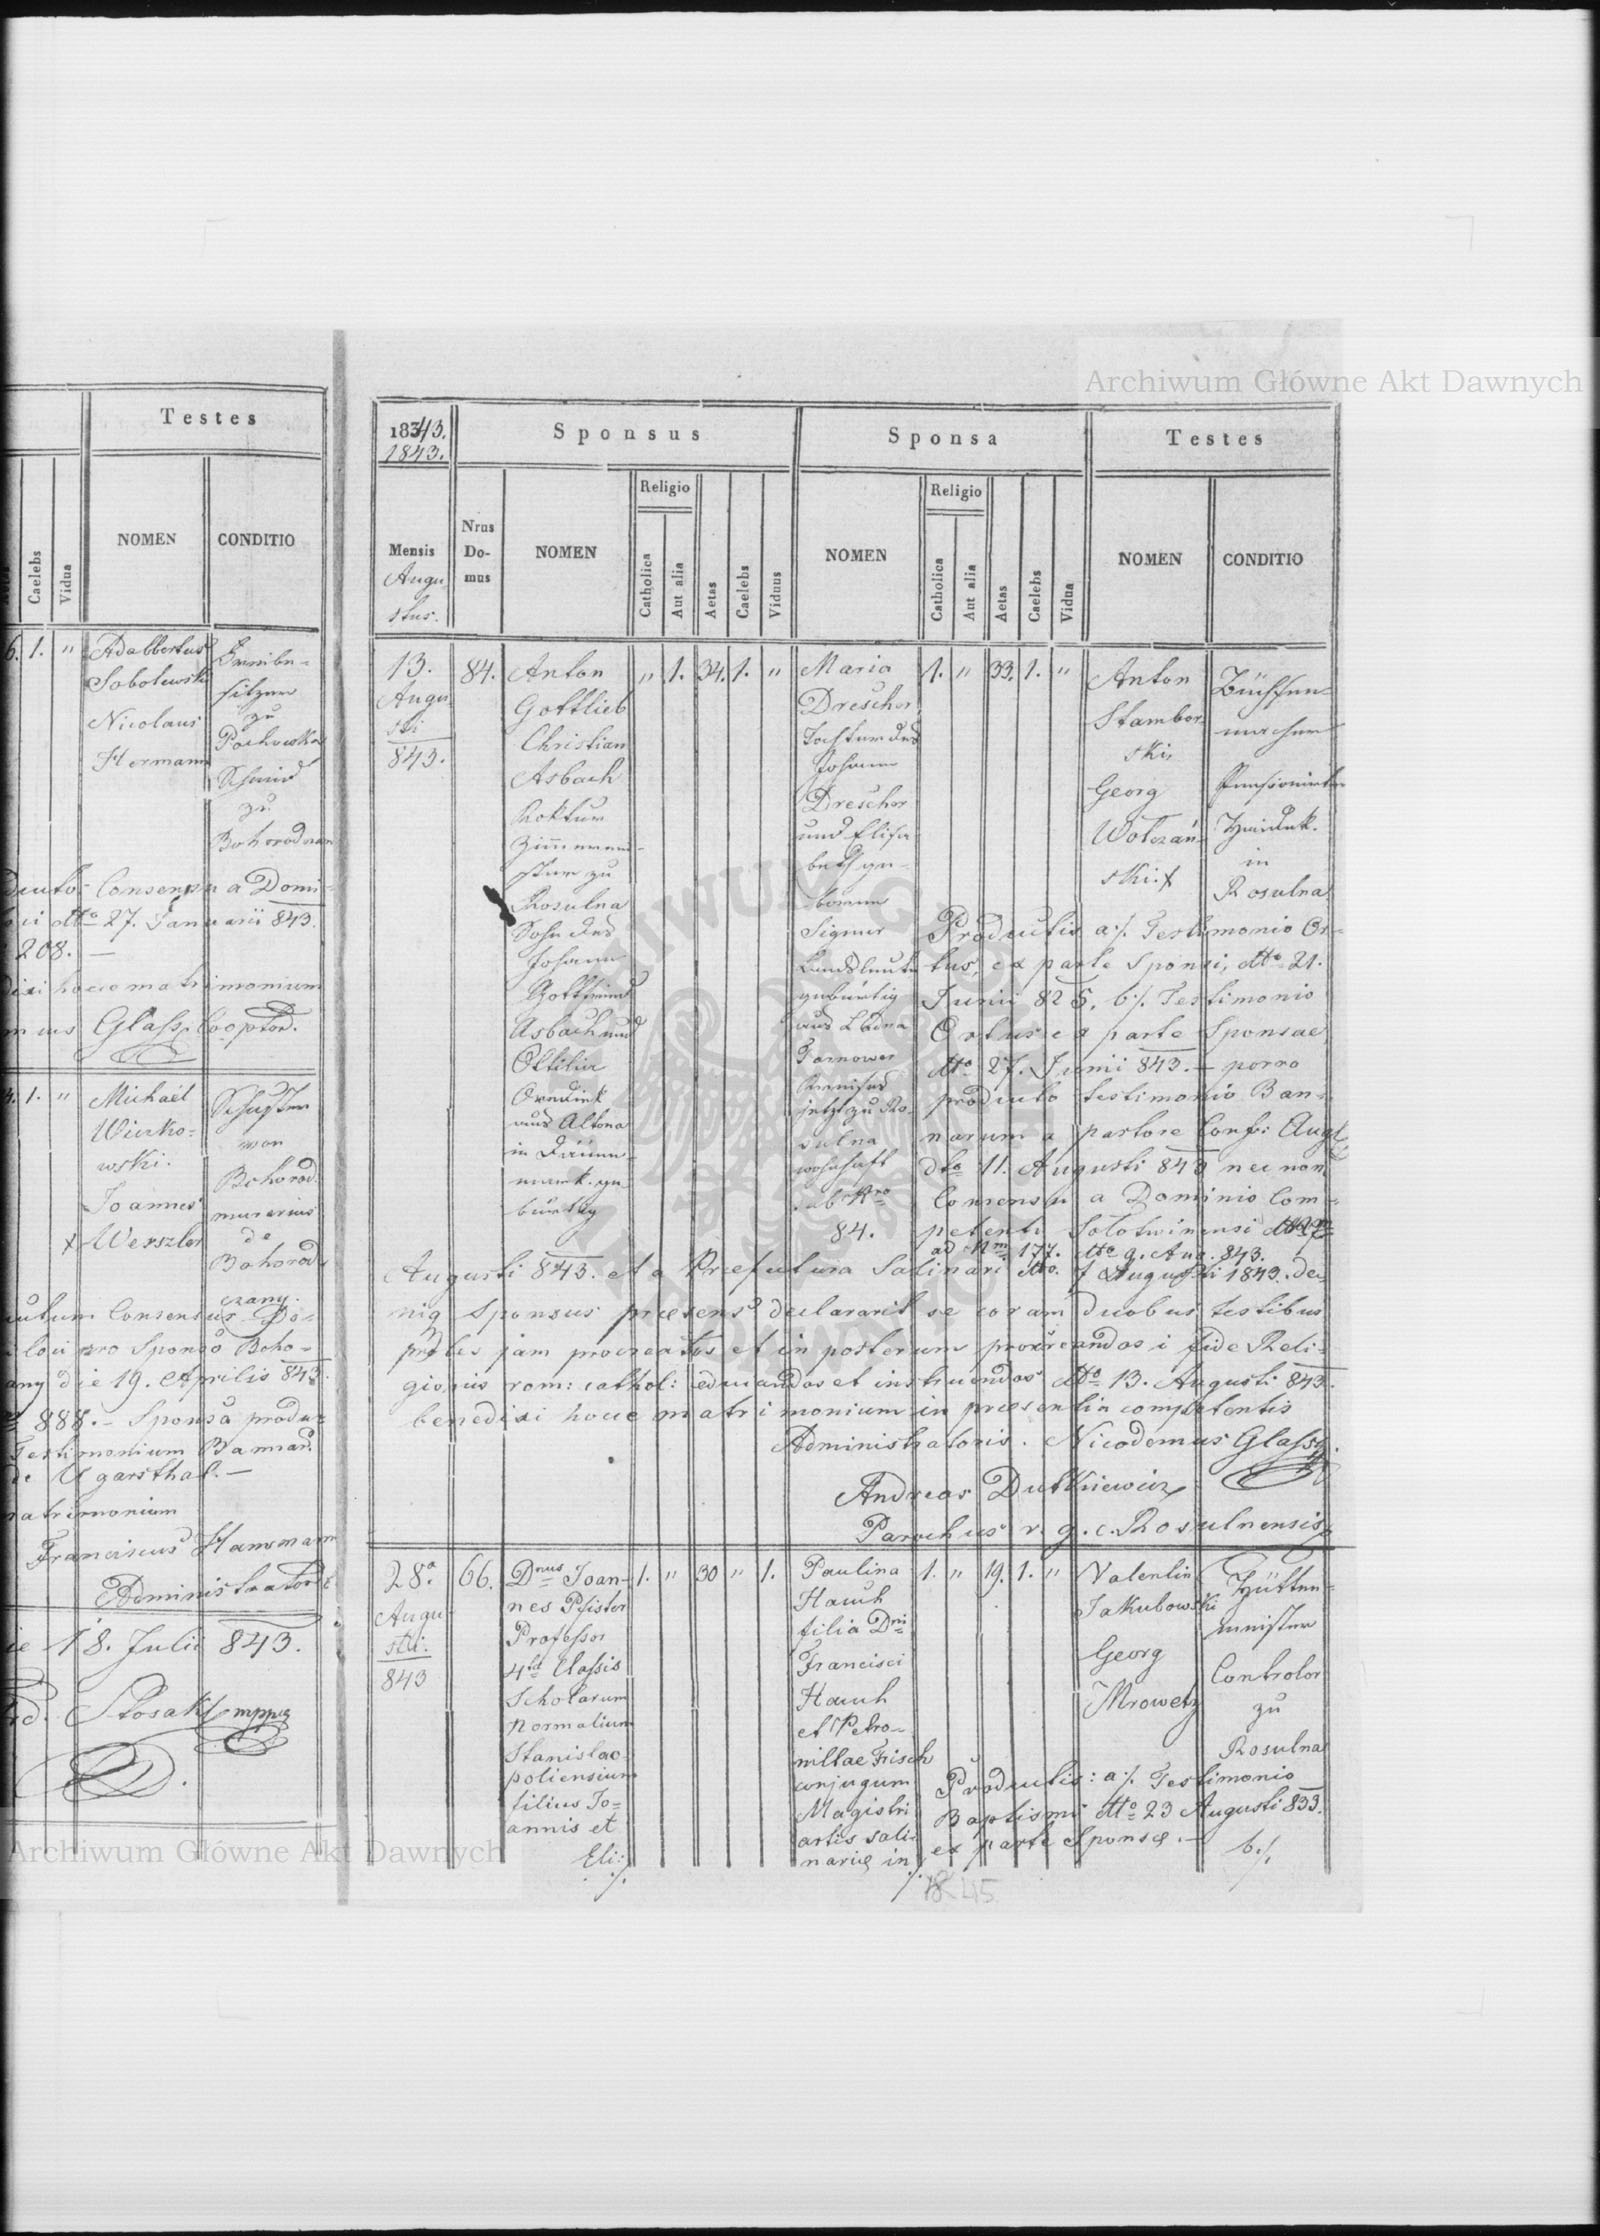 Archiwum Główne Akt Dawnych
Testes
Caelebs
Vidua
NOMEN
CONDITIO
6. 1. "
Adalbertus
Sobolewski
Nicolaus
Hermann
zu
Schmid
zu
Consensu a Domi-
dtto 27. Januarii 843.
208. —
hocce matrimonium
Glass Cooptor.
1. "
Michaël
Wierko-
wski.
Joannes
x Werszler
Schuster
von
Bohorod.
murarius
de
Bohorod-
czany.
Consensus Do-
loci pro Sponso Boho-
die 19. Aprilis 843.
888. – Sponsa produ-
Testimonium Bannar.
de Ugarsthal. —
matrimonium
Franciscus Hansmann
Administrator
18. Julii 843.
Stosak mppa
1843.
1843.
Sponsus
Sponsa
Testes
Mensis
Augu-
stus.
Nrus
Do-
mus
NOMEN
Religio
Catholica
Aut alia
Aetas
Caelebs
Viduus
NOMEN
Religio
Catholica
Aut alia
Aetas
Caelebs
Vidua
NOMEN
CONDITIO
13.
Augu-
sti
843.
84.
Anton
Gottlieb
Christian
Asbach
Doktur
zu
Rosulna
Sohn des
Johann
Gottfried
Asbach und
Ottilia
aus Altona
in Dänne-
mark ge-
bürtig
" 1. 34. 1. "
Maria
Drescher,
Tochter des
Johann
Drescher
und Elisa-
beth ge-
borene
Signer
Landsleute
gebürtig
aus
Tarnower
Kreises
jetzt zu Ro-
sulna
wohnhaft
sub Nro
84.
1. " 33. 1. "
Anton
Stambor-
ski,
Georg
Wolczań-
ski. x
Büchsen-
macher
Pensionirter
in
Rosulna
Productis a./. Testimonio Or-
tus, ex parte Sponsi, dtto 21.
Junii 825, b./. Testimonio
Ortus ex parte Sponsae
dtto 27. Junii 843. – porro
producto testimonio Ban-
narum a pastore Conf: Aug.
dto 11. Augusti 843 nec non
Consensu a Dominio Com-
petenti Solotwinensi
ad Nrm 177. dtto 9. Aug. 843.
Augusti 843. et a Praefectura Salinari dtto. 7 Augusti 1843. de-
niq Sponsus praesens declararit se coram duobus testibus
proles jam procreatos et in posterum procreandos i fide Reli-
gionis rom: cathol: educandos et instruendos dtto 13. Augusti 843.
benedixi hocce matrimonium in praesentia competentis
Administratoris. Nicodemus Glass.
Andreas Dutkiewicz
Parochus r. g. c. Rosulnensis
28a.
Augu-
sti.
843
66.
Dnus Joan-
nes Pfister
Professor
4ta Classis
Scholarum
Normalium
Stanislao-
poliensium
filius Jo-
annis et
Eli:
./.
1. " 30 " 1.
Paulina
Hauch
filia Dni
Francisci
Hauch
et Petro-
nillae Frisch
conjugum
Magistri
artis sali-
narię in
./.
1. " 19. 1. "
Valentin
Jakubowski
Georg
Mrowetz
Hütten-
meister
Controlor
zu
Rosulna
Productis: a./. Testimonio
Baptismi dtto 23 Augusti 833.
ex parte Sponsę. —
b./.
Archiwum Główne Akt Dawnych
45